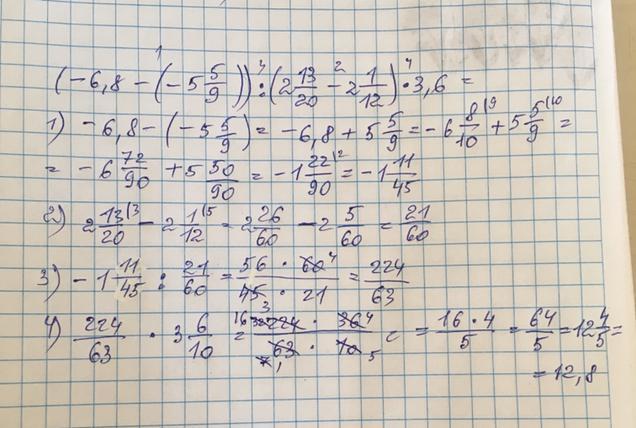 (-6,8 - (-5 5/9)) : (2 13/20 - 2 1/12) · 3,6 =
1) -6,8 - (-5 5/9) = -6,8 + 5 5/9 = -6 8/10 + 5 5/9 =
= -6 72/90 + 5 50/90 = -1 22/90 = -1 11/45
2) 2 13/20 - 2 1/12 = 2 26/60 - 2 5/60 = 21/60
3) -1 11/45 : 21/60 = 56 · 60/45 · 21 = 224/63
4) 224/63 · 3 6/10 = 224 · 36/63 · 10 = 16 · 4/5 = 64/5 = 12 4/5 =
= 12,8